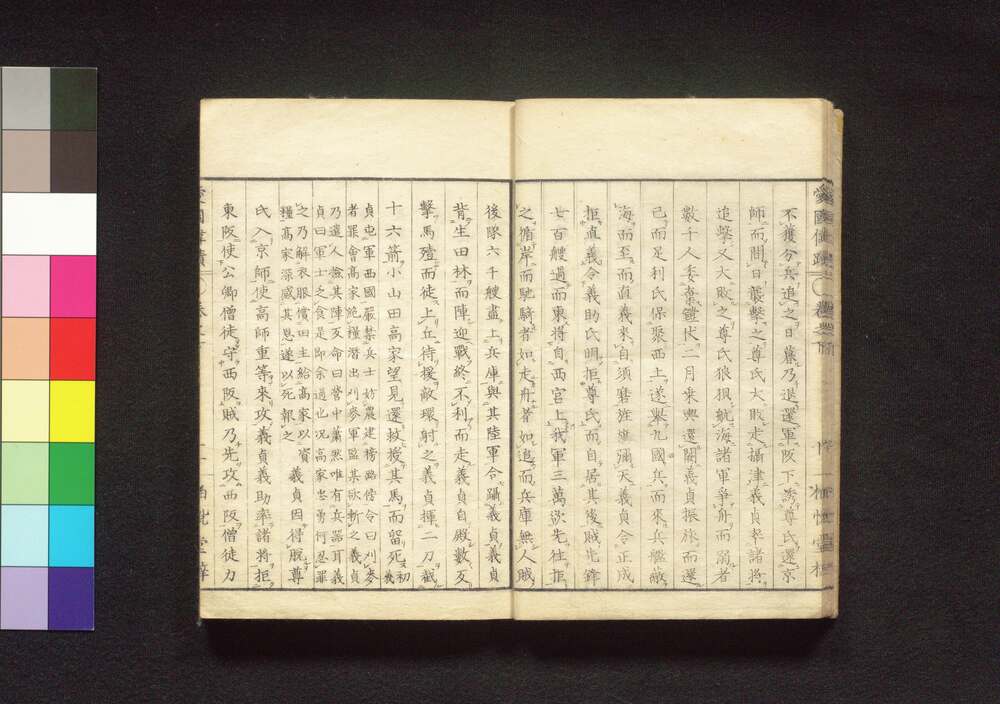 不獲分兵追之日暮乃退還軍阪下誘尊氏還京
師而間日襲擊之尊氏大敗走攝津義貞率諸將
追擊又大敗之尊氏狼狽航海諸軍爭舟而溺者
數千人委棄鎧仗二月乘輿還闕義貞振旅而還
已而足利氏保聚西土遂擧九國兵而來兵艦蔽
海而至而直義來自須磨旌旗彌天義貞令正成
拒直義令義助氏明拒尊氏而自居其後賊先鋒
七百艘過而東將自西宮上我軍三萬欲先往拒
之循岸而馳騎者如走舟者如追而兵庫無人賊
後隊六千艘盡上兵庫與其陸軍合躡義貞義貞
背生田林而陣迎戰終不利而走義貞自殿數反
擊馬殪而徒上丘待援敵環射之義貞揮二刀截
十六箭小山田高家望見還救授其馬而留死初義
貞屯軍西國嚴禁兵士妨農建榜路傍令曰刈麥
者罪會高家絶糧潛出刈麥軍監某欲斬之義貞
乃遣人檢其陣反命曰營中蕭然唯有兵器耳義
貞曰軍士乏食是即余過也況高家忠勇何忍罪
之乃解衣服償田主給高家以資
糧高家深感其恩遂以死報之 義貞因得脫尊
氏入京師使高師重等來攻義貞義助率諸將拒
東阪使公卿僧徒守西阪賊乃先攻西阪僧徒力